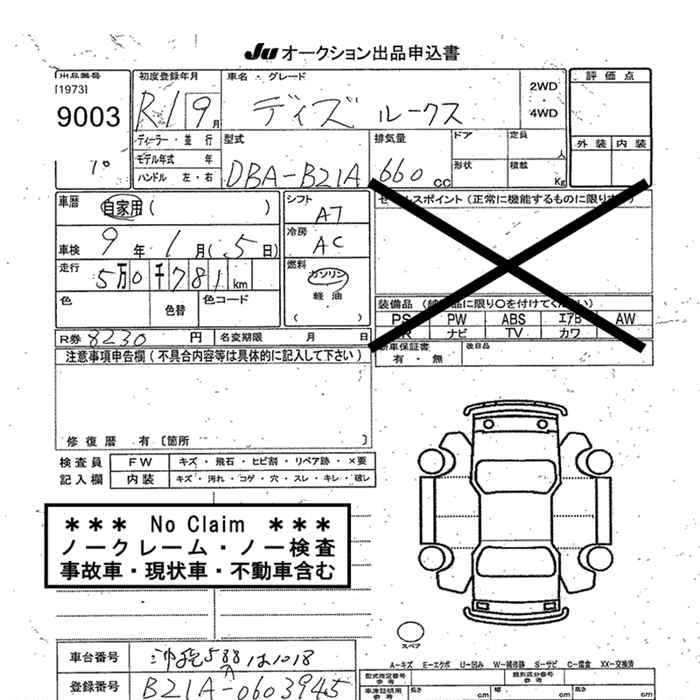 Ju オークション出品申込書
出品番号
[1973]
9003
初度登録年月
R1 9月
車名・グレード
ディズ ルークス
2WD
・
4WD
評価点
外装 内装
ディーラー・並行
モデル年式 年
ハンドル 左・右
型式
DBA-B21A
排気量
660cc
ドア
定員
人
形状
積載
Kg
車暦
自家用( )
車検 9年1月(5日)
走行
5万0千781km
色
色替
色コード
シフト
AT
冷房
AC
燃料
ガソリン
軽油
( )
セールスポイント(正常に機能するものに限ります)
装備品
PS PW ABS エアB AW
ナビ TV カワ
新車保証書
有・無
後日品
R券 8230円
名変期限 月 日
注意事項申告欄(不具合内容等は具体的に記入して下さい)
修復暦 有〔箇所 〕
検査員
記入欄
FW
キズ・飛石・ヒビ割・リペア跡・×要
内装
キズ・汚れ・コゲ・穴・スレ・キレ・破レ
*** No Claim ***
ノークレーム・ノー検査
事故車・現状車・不動車含む
スペア
A-キズ E-エクボ U-凹み W-補修跡 S-サビ C-腐食 XX-交換済
車台番号
登録番号
B21A-0603945
型式指定番号
参考
類別区分番号
参考
車庫証明用
参考
長さ cm
幅 cm
高さ cm